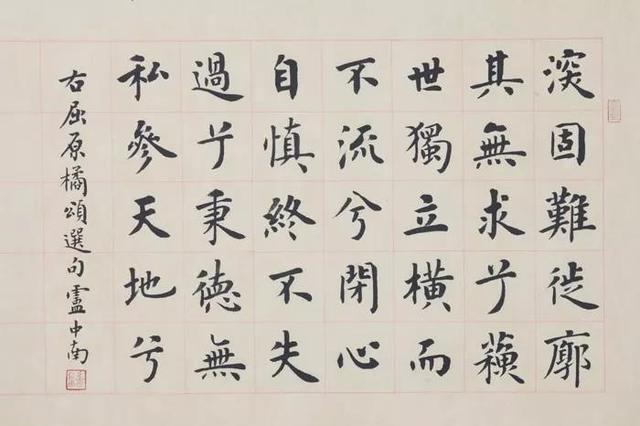 深固難徙廓
其無求兮蘓
世獨立橫而
不流兮閉心
自慎終不失
過兮秉德無
私參天地兮
右屈原橘頌選句盧中南